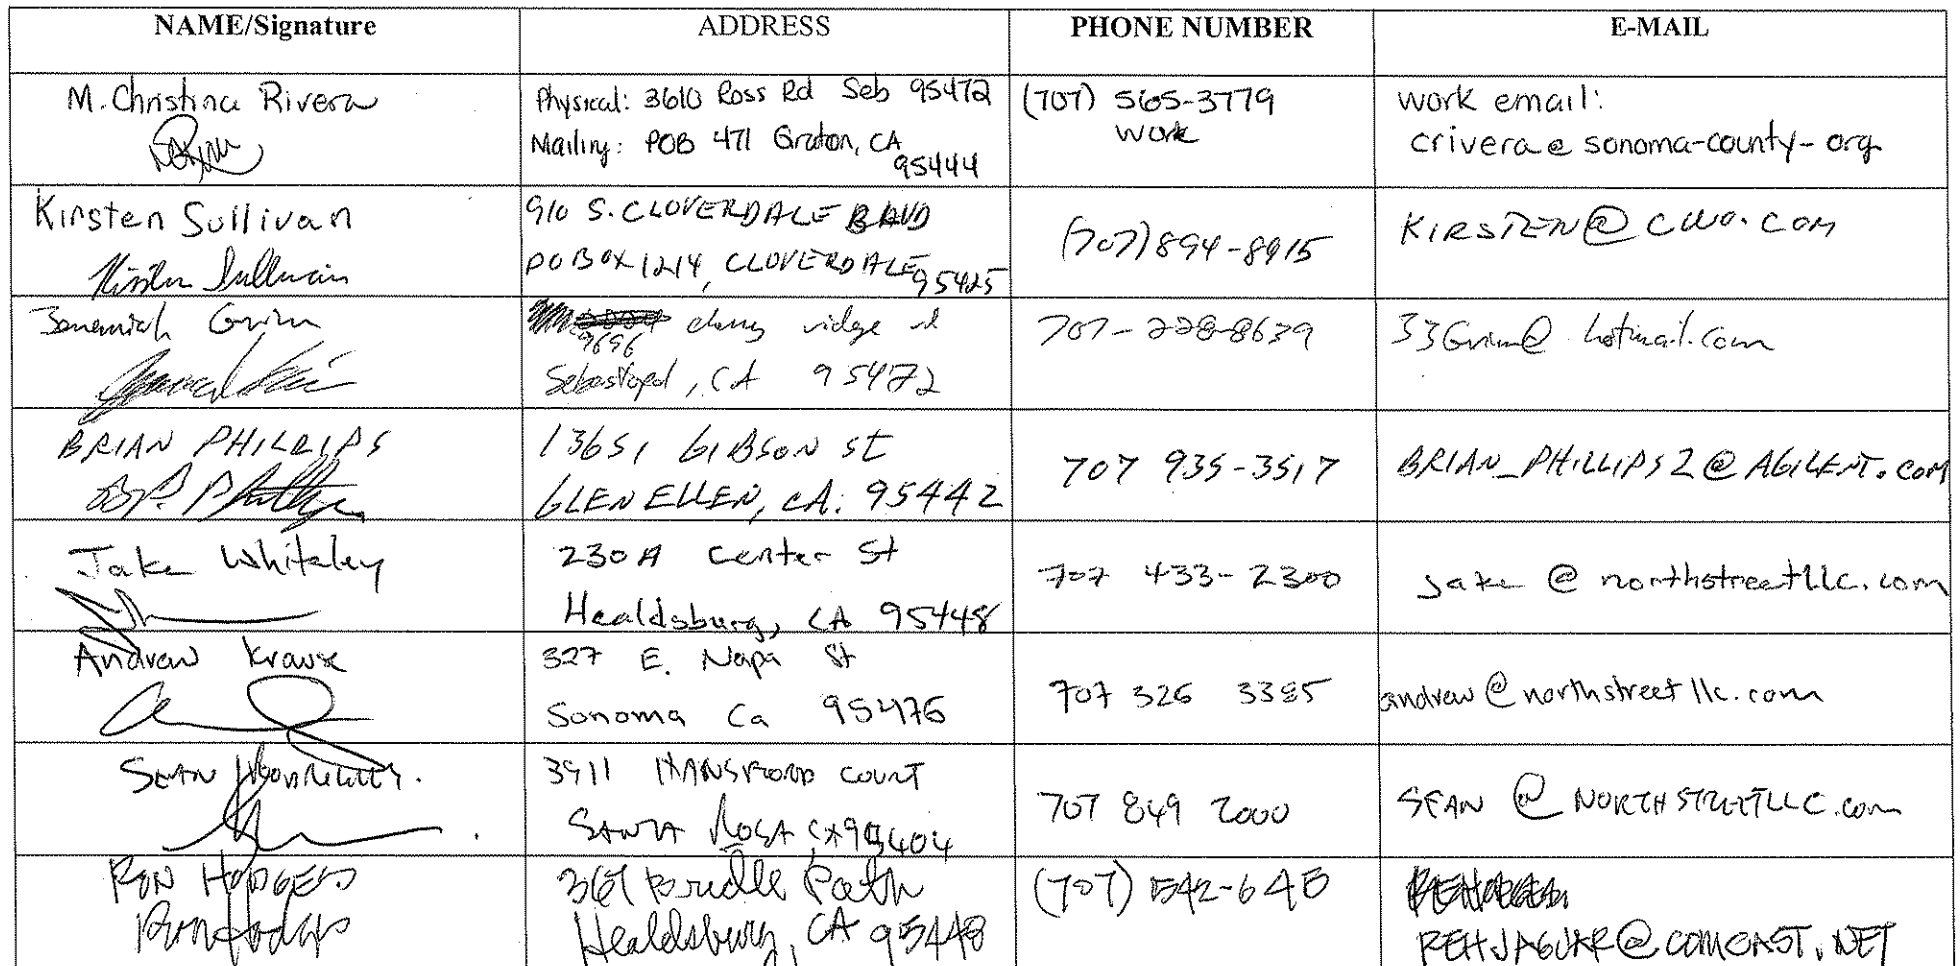 NAME/Signature ADDRESS PHONE NUMBER E-MAIL
M. Christina Rivera
Physical: 3610 Ross Rd Seb 95472
Mailing: POB 471 Graton, CA
95444
(707) 565-3779
work
work email:
crivera@sonoma-county-org
Kirsten Sullivan
Kirsten Sullivan
910 S. CLOVERDALE BLVD
PO BOX 1214, CLOVERDALE
95425
(707) 894-8915
KIRSTEN@CWO.COM
Jeremiah Grim
9696 ridge rd
Sebastopol, CA 95472
707-228-8639
33Grim@hotmail.com
BRIAN PHILLIPS
13651 GIBSON St
GLEN ELLEN, CA. 95442
707 935-3517
BRIAN_PHILLIPS2@AGILENT.COM
Jake Whiteley
230 A Center St
Healdsburg, CA 95448
707 433-2300
Jake @ northstreetllc.com
Andrew Krause
327 E. Napa St
Sonoma Ca 95476
707 326 3385
andrew@northstreetllc.com
SEAN
3911 HANSFORD COURT
SANTA ROSA, CA 95404
707 849 2000
SEAN @ NORTHSTREETLLC.com
RON HODGES
Ron Hodges
361 Bridle Path
Healdsburg, CA 95448
(707)
REHJAGUAR@COMCAST.NET